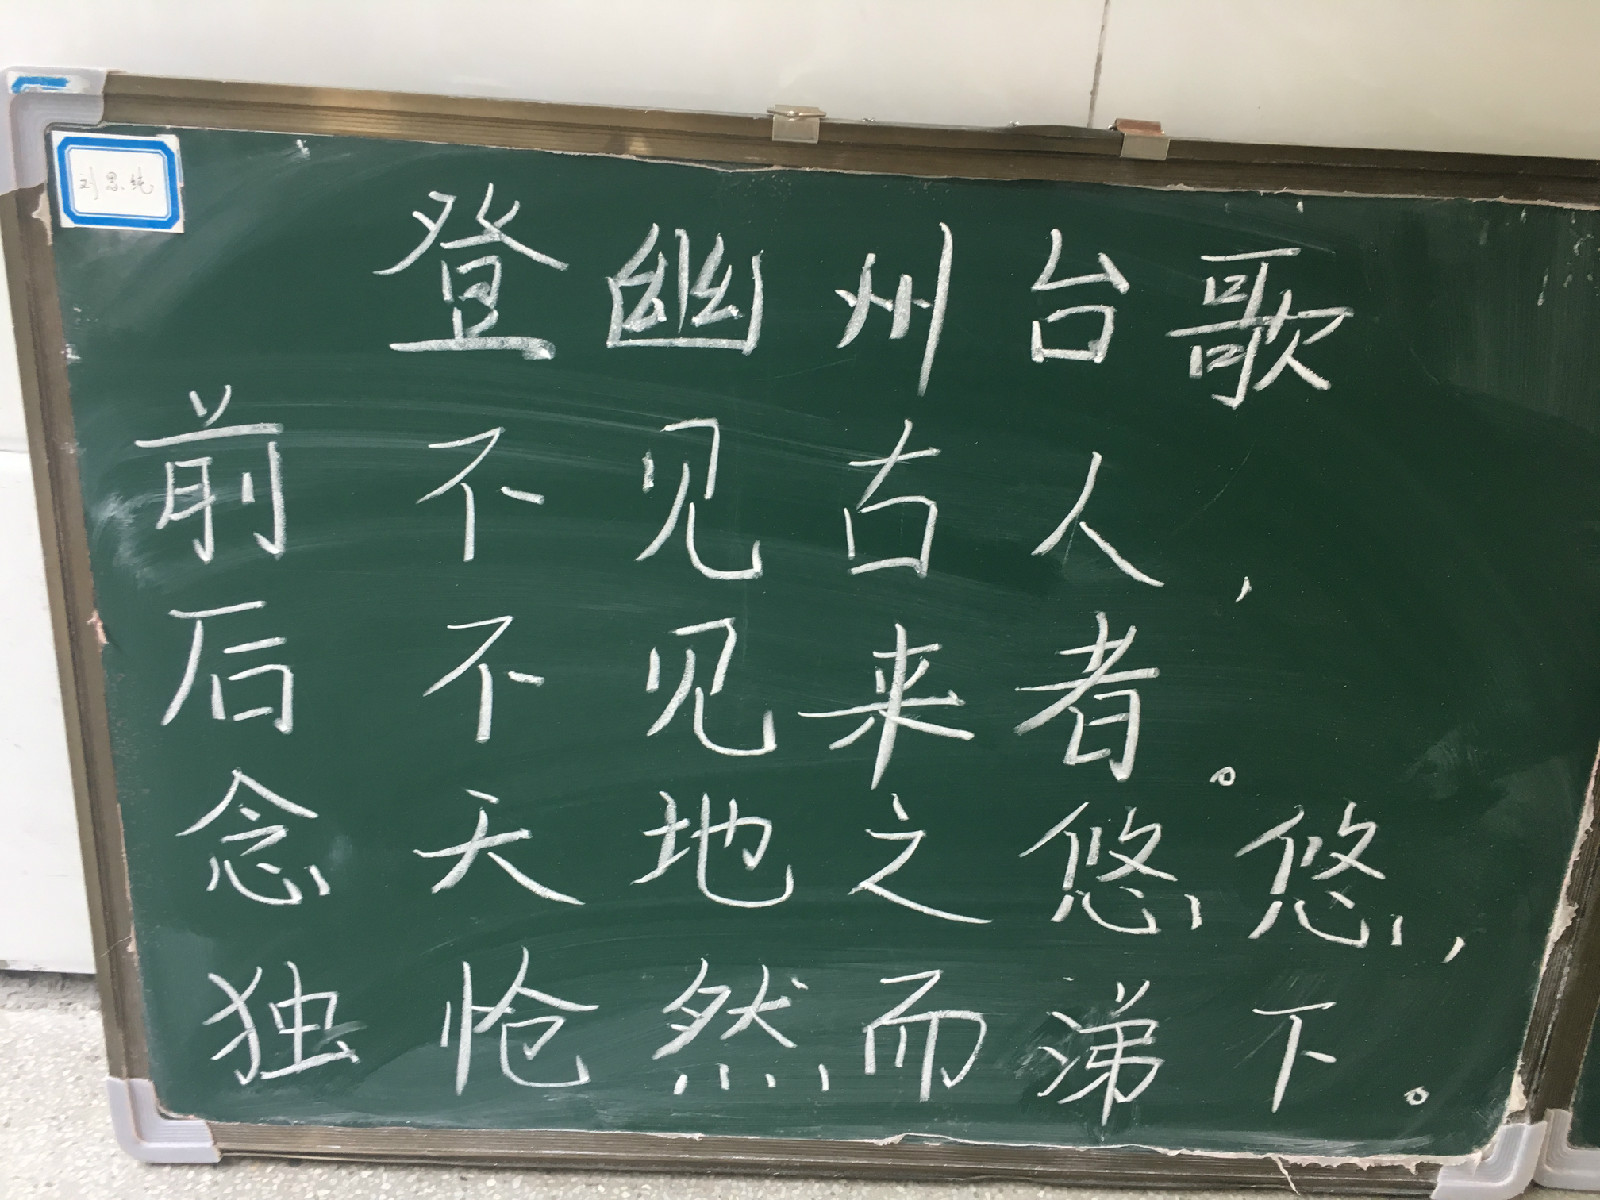 刘思纯
登幽州台歌
前不见古人，
后不见来者。
念天地之悠悠，
独怆然而涕下。